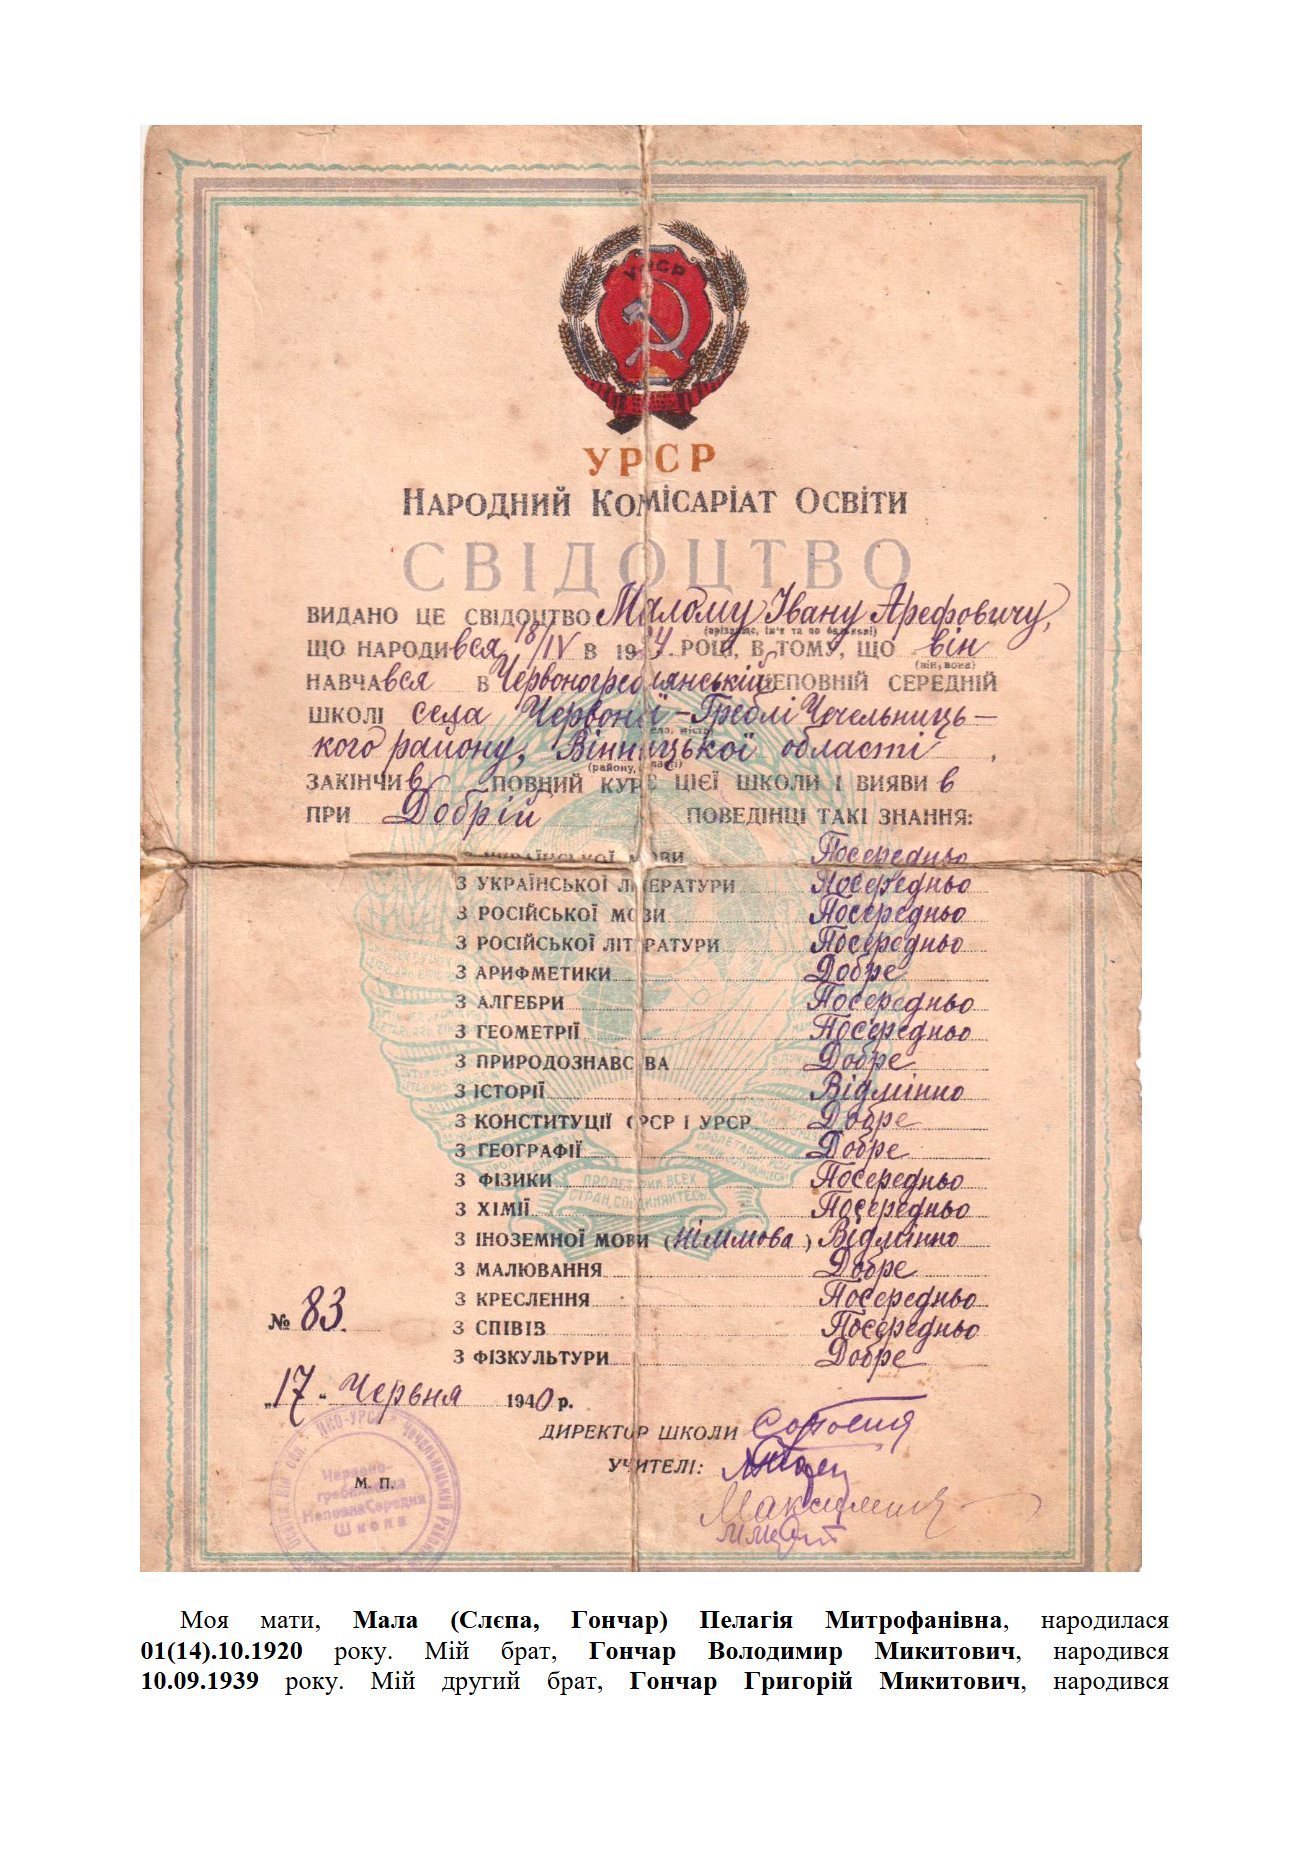 УРСР
УРСР
НАРОДНИЙ КОМІСАРІАТ ОСВІТИ
СВІДОЦТВО
ВИДАНО ЦЕ СВІДОЦТВО Малому Івану Арефовичу,
(прізвище, ім'я та по батькові)
ЩО НАРОДИвся 18/IV В 1924 РОЦІ, В ТОМУ, ЩО він
(він, вона)
НАВЧАвся В Червоногреблянській НЕПОВНІЙ СЕРЕДНІЙ
ШКОЛІ села Червоної-Греблі Чечельниць-
кого району, Вінницької області,
ЗАКІНЧИв ПОВНИЙ КУРС ЦІЄЇ ШКОЛИ І ВИЯВИв
ПРИ Добрій ПОВЕДІНЦІ ТАКІ ЗНАННЯ:
З УКРАЇНСЬКОЇ МОВИ Посередньо
З УКРАЇНСЬКОЇ ЛІТЕРАТУРИ Посередньо
З РОСІЙСЬКОЇ МОВИ Посередньо
З РОСІЙСЬКОЇ ЛІТЕРАТУРИ Посередньо
З АРИФМЕТИКИ Добре
З АЛГЕБРИ Посередньо
З ГЕОМЕТРІЇ Посередньо
З ПРИРОДОЗНАВСТВА Добре
З ІСТОРІЇ Відмінно
З КОНСТИТУЦІЇ СРСР І УРСР Добре
З ГЕОГРАФІЇ Добре
З ФІЗИКИ Посередньо
З ХІМІЇ Посередньо
З ІНОЗЕМНОЇ МОВИ (Німмова) Відмінно
З МАЛЮВАННЯ Добре
З КРЕСЛЕННЯ Посередньо
З СПІВІВ Посередньо
З ФІЗКУЛЬТУРИ Добре
№ 83.
„17" Червня 1940 р.
ДИРЕКТОР ШКОЛИ
УЧИТЕЛІ:
М. П.
Червоно-
гребл
Неповна Середня
Школа
ПРОЛЕТАРИИ ВСЕХ
СТРАН, СОЕДИНЯЙТЕСЬ!
Моя мати, Мала (Слєпа, Гончар) Пелагія Митрофанівна, народилася
01(14).10.1920 року. Мій брат, Гончар Володимир Микитович, народився
10.09.1939 року. Мій другий брат, Гончар Григорій Микитович, народився